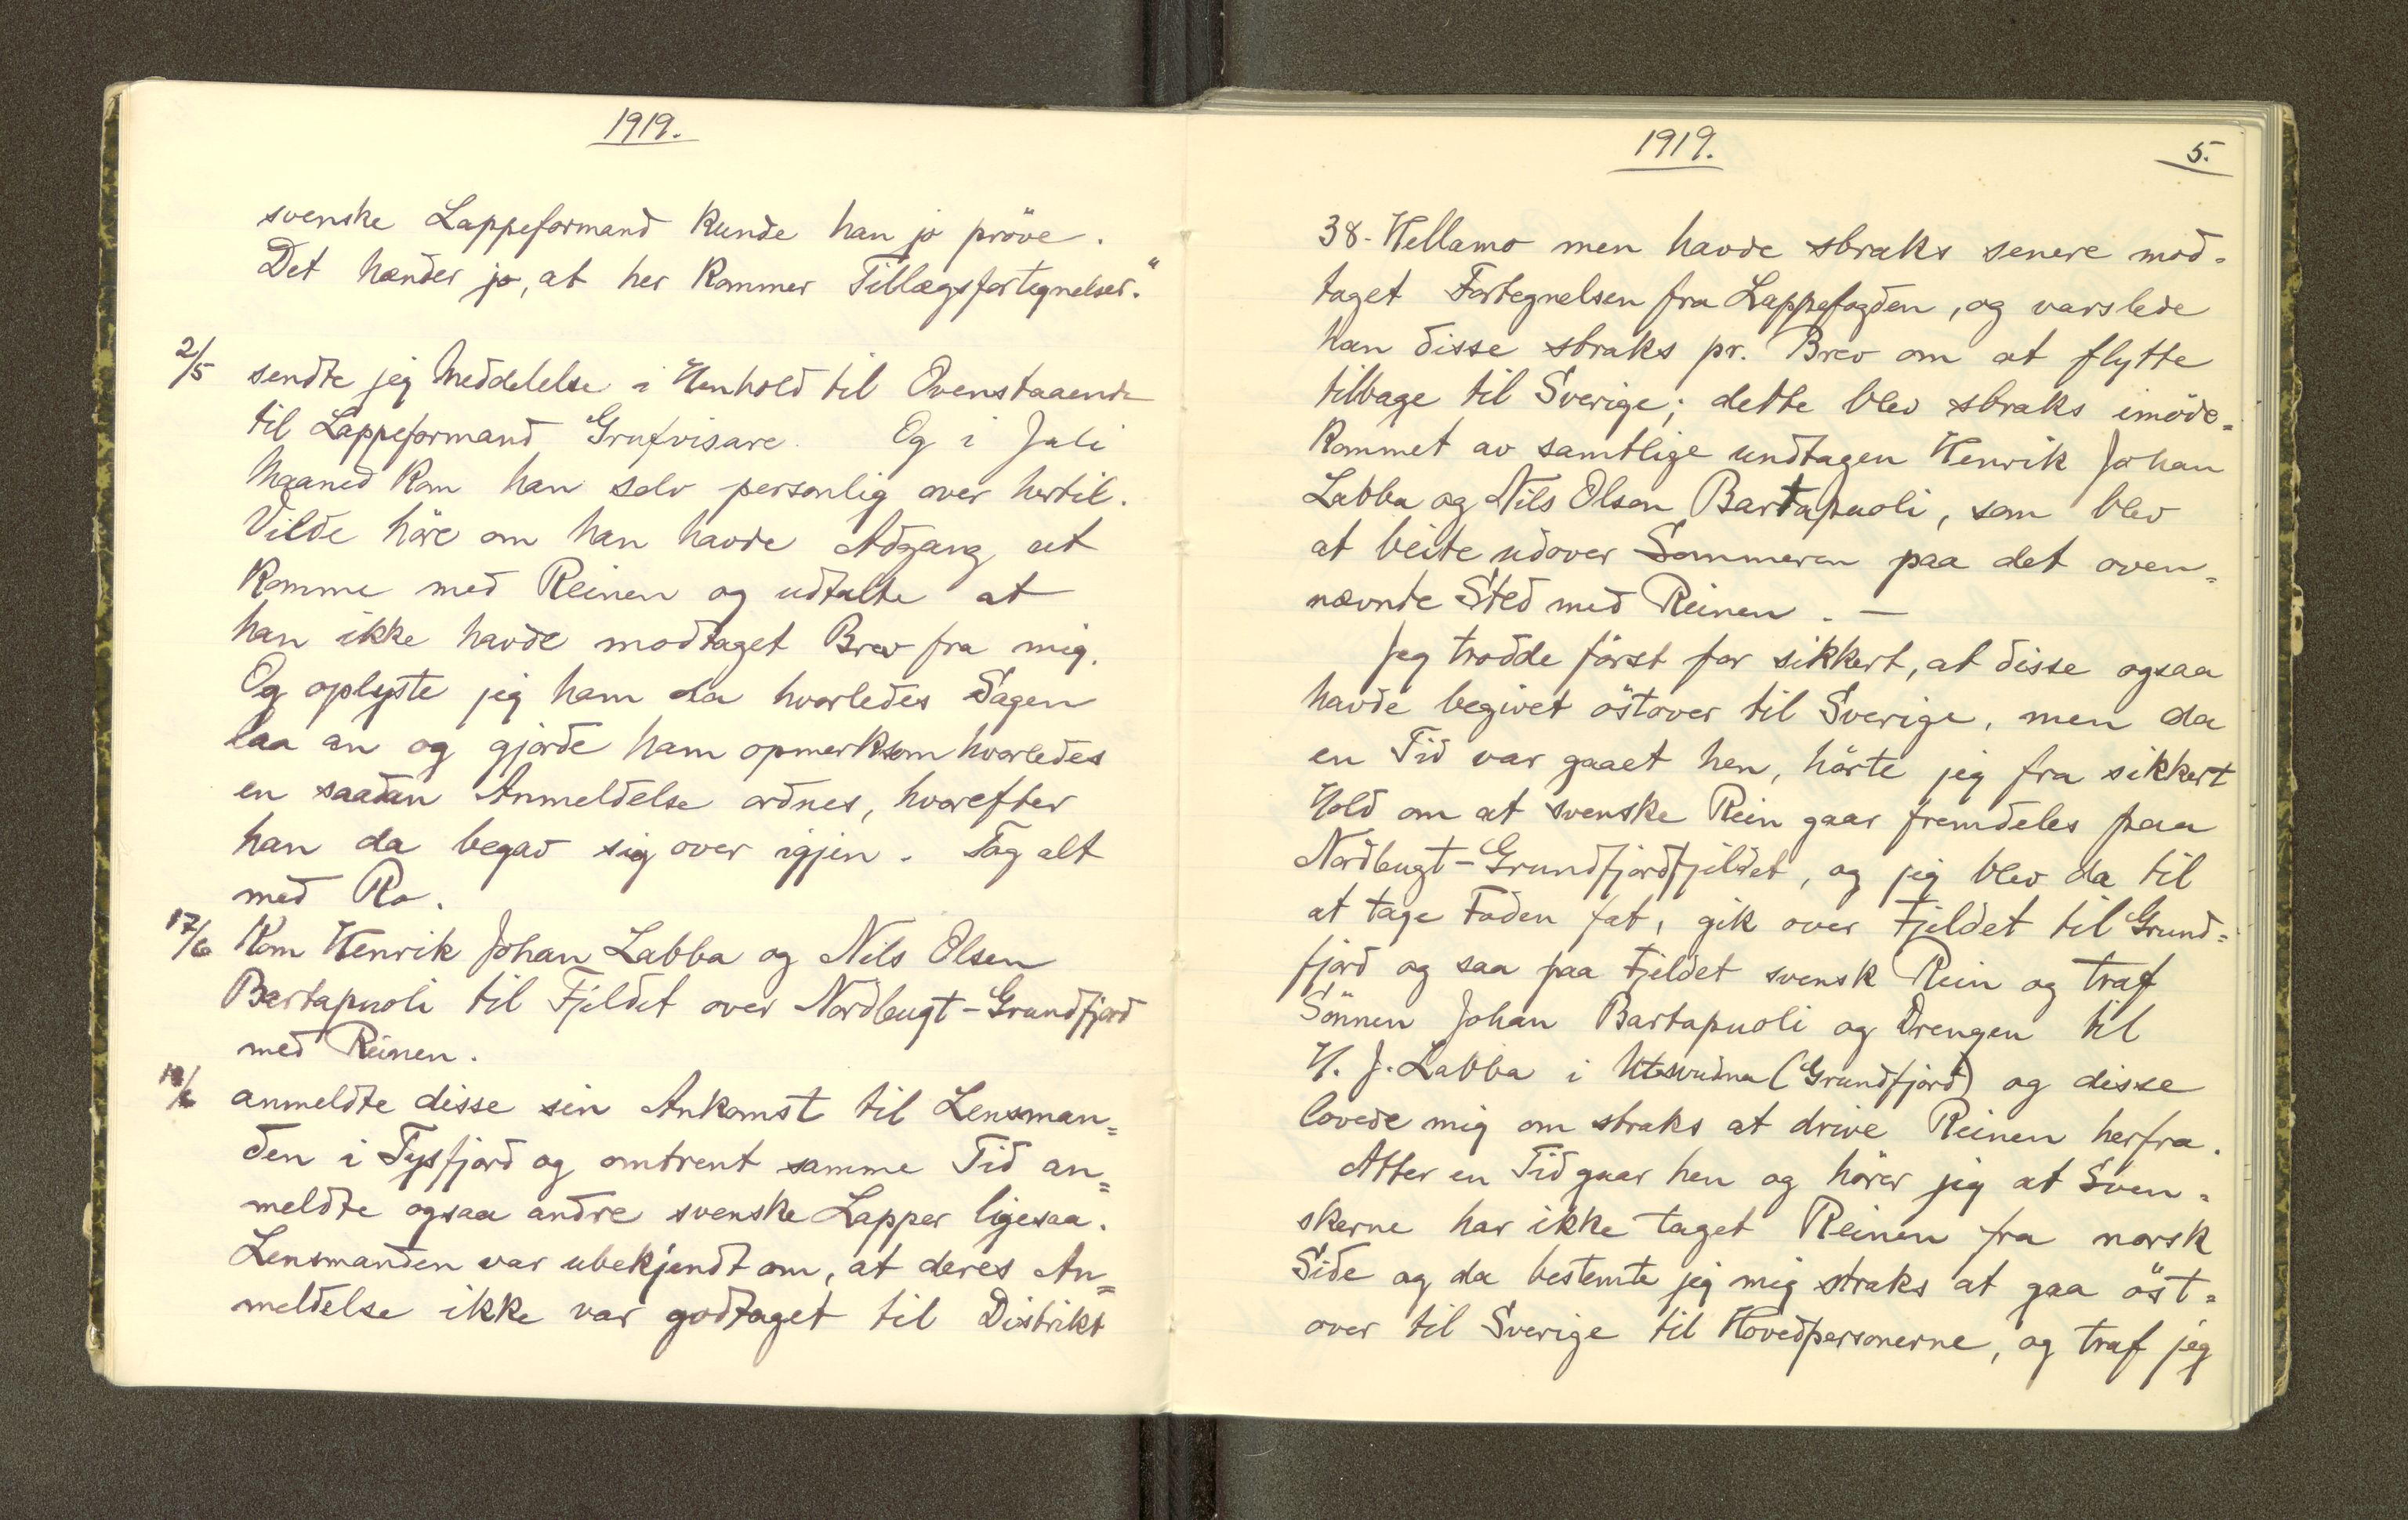 1919.
svenske Lappeformand kunde han jo pröve.
Det hænder jo, at her kommer Tillægsfortegnelser."
2/5 sendte jeg Meddelelse i Henhold til Ovenstaaende
til Lappeformand Grufvisare. Og i Juli
Maaned kom han selv personlig over hertil.
Vilde höre om han havde Adgang at
komme med Reinen og udtalte at
han ikke havde modtaget Brev fra mig.
Og oplyste jeg ham da hvorledes Sagen
laa an og gjorde ham opmerksom hvorledes
en saadan Anmeldelse ordnes, hvorefter
han da begav sig over igjen. Tog alt
med Ro.
17/6 Kom Henrik Johan Labba og Nils Olsen
Bartapuoli til Fjeldet over Nordbugt-Grundfjord
med Reinen.
18/6 anmeldte disse sin Ankomst til Lensman=
den i Tysfjord og omtrent samme Tid an=
meldte ogsaa andre svenske Lapper ligesaa.
Lensmanden var ubekjendt om, at deres An=
meldelse ikke var godtaget til Distrikt
1919. 5.
38-Hellamo men havde straks senere mod=
taget Fortegnelsen fra Lappefogden, og varslede
han disse straks pr. Brev om at flytte
tilbage til Sverige; dette blev straks imöde=
kommet av samtlige undtagen Henrik Johan
Labba og Nils Olsen Bartapuoli, som blev
at beite udover Sommeren paa det oven=
nævnte Sted med Reinen. —
Jeg trodde först for sikkert, at disse ogsaa
havde begivet östover til Sverige, men da
en Tid var gaaet hen, hörte jeg fra sikkert
Hold om at svenske Rein gaar fremdeles paa
Nordbugt-Grundfjordfjeldet, og jeg blev da til
at tage Foden fat, gik over Fjeldet til Grund=
fjord og saa paa Fjeldet svensk Rein og traf
Sönnen Johan Bartapuoli og Drengen til
H. J. Labba i (Grundfjord) og disse
lovede mig om straks at drive Reinen herfra.
Atter en Tid gaar hen og hörer jeg at Sven=
skerne har ikke taget Reinen fra norsk
Side og da bestemte jeg mig straks at gaa öst=
over til Sverige til Hovedpersonerne, og traf jeg